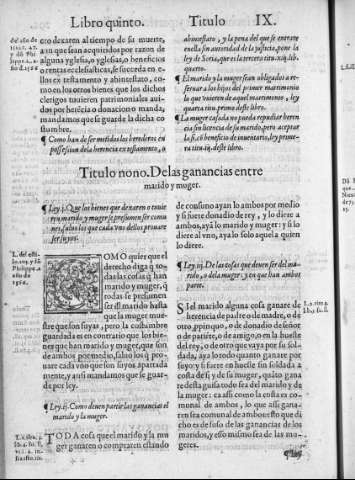 Libro quinto. Titulo IX.
cto dexaren al tiempo de su muerte,
aun que sean adquiridos por razon de
alguna yglesia, o yglesias, o beneficios
o rentas ecclesiasticas, se succeda en e-
llos ex testamento y abintestato, co-
mo en los otros bienes que los dichos
clerigos tuuieren patrimoniales aui-
dos por herẽcia o donacion o manda,
mandamos que se guarde la dicha co
stumbre.
¶ Como han de ser metidos los herederos en
possession de la herencia en testamento, o
abinestato, y la pena del que se entrare
en ella sin autoridad de la justicia, pone la
ley de Soria, que es la tercera titu. xiij. lib.
quarto.
¶ El marido y la muger sean obligados a re-
seruar a los hijos del primer matrimonio
lo que huuieren de aquel matrimonio, ley
quarta titu. primo deste libro.
¶ La muger casada no pueda repudiar heren
cia sin licencia de su marido, pero aceptar
la sí, cõ beneficio de inuentario, ley prime-
ra titu. iij. deste libro.
Titulo nono. De las ganancias entre
marido y muger.
¶ Ley. j. Que los bienes que dexaren o tuuie
ren marido y muger, se presumen ser comu
nes, saluo los que cada vno dellos prouare
ser suyos.
COMO quier que el
derecho diga q̃ to-
das las cosas q̃ han
marido y muger, q̃
todas se presumen
ser del marido hasta
que la muger mue-
stre que son suyas, pero la costumbre
guardada es en contrario que los bie-
nes que han marido y muger, que son
de ambos por medio, saluo los q̃ pro-
uare cada vno que son suyos apartada
mente, y assi mandamos que se guar-
de por ley.
¶ Ley. ij. Como deuen partir las ganancias el
marido y la muger.
TODA cosa que el marido y la mu
ger ganaren o compraren estando
de consuno ayan lo ambos por medio
y si fuere donadio de rey, y lo diere a
ambos, aya lo marido y muger: y si lo
diere al vno, aya lo solo aquel a quien
lo diere.
¶ Ley. iij. De las cosas que deuen ser del ma-
rido, o de la muger, y en que han ambos
parte.
SI el marido alguna cosa ganare de
herencia de padre o de madre, o de
otro, ppinquo, o de donadio de señor
o de pariẽte, o de amigo, o en la hueste
del rey, o de otro que vaya por su sol-
dada, aya lo todo quanto ganare por
suyo: y si fuere en hueste sin soldada a
costa de si y de su muger, quãto gana
re desta guisa todo sea del marido y de
la muger: ca assi como la costa es co-
munal de ambos, lo que assi ganare
sea comunal de ambos: esto que di
cho es de suso de las ganancias de los
maridos, y esso mismo sea de las mu-
geres.